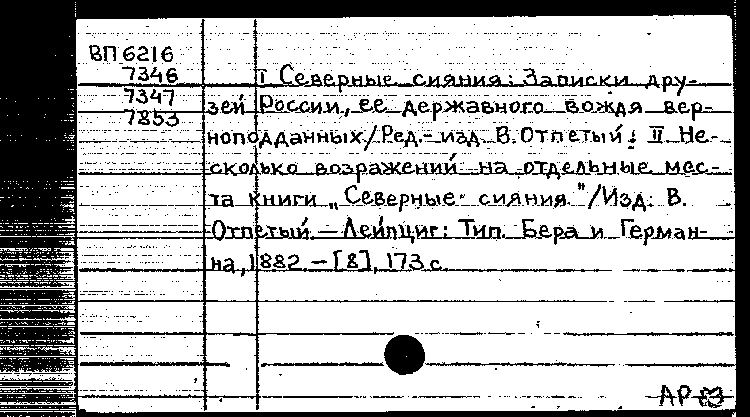 ВП 6216
7346
7347
7853
I Северные сияния: Записки дру-
зей России, ее державного вождя вер-
ноподданных/Ред.-изд. В. Отпетый; II Не-
сколько возражений на отдельные мес-
та книги „Северные сияния"/Изд. В.
Отпетый. — Лейпциг: Тип. Бера и Герман-
на, 1882. — [8], 173 с.
АР